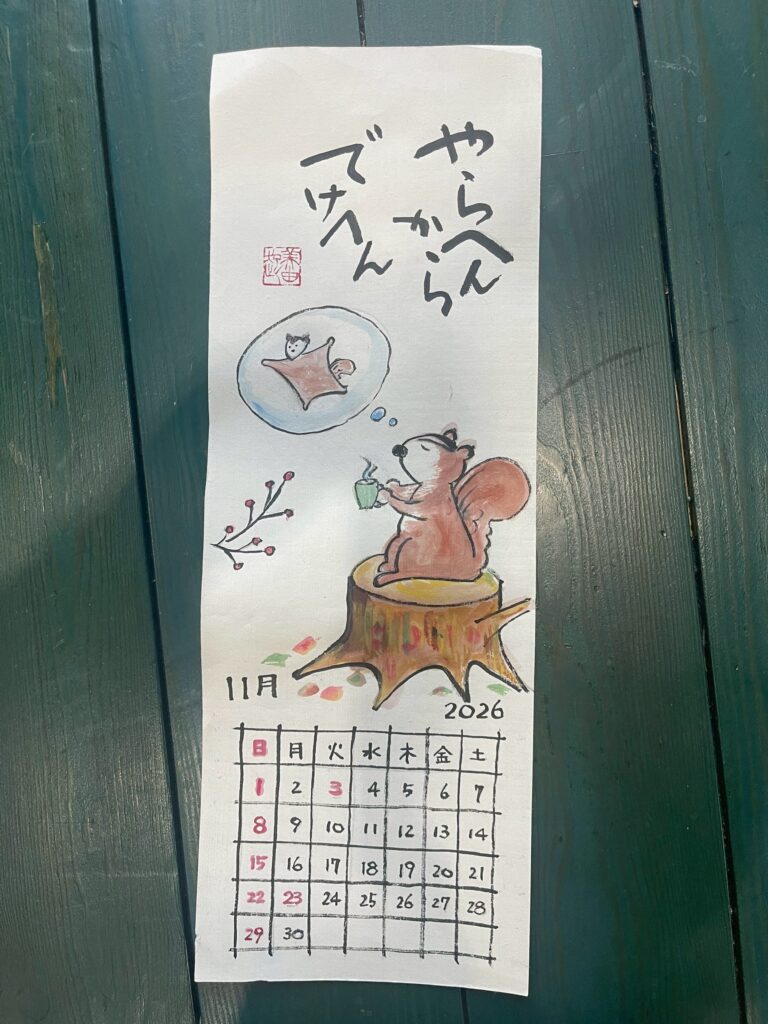 やらへん
から
でけへん
11月
2026
日 月 火 水 木 金 土
1 2 3 4 5 6 7
8 9 10 11 12 13 14
15 16 17 18 19 20 21
22 23 24 25 26 27 28
29 30